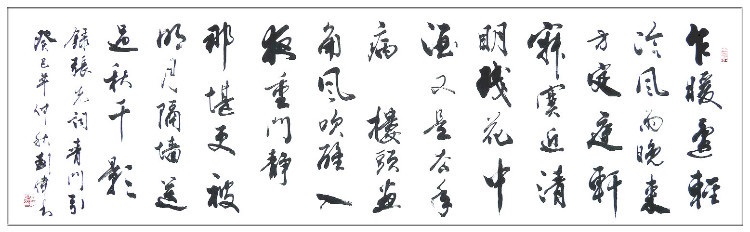 乍暖還輕
冷風雨晚來
方定庭軒
寂寞近清
明殘花中
酒又是去年
病樓頭畫
角風吹醒入
夜重門靜
那堪更被
明月隔墻送
過秋千影
錄張先詞青門引
癸巳年仲秋劉偉書